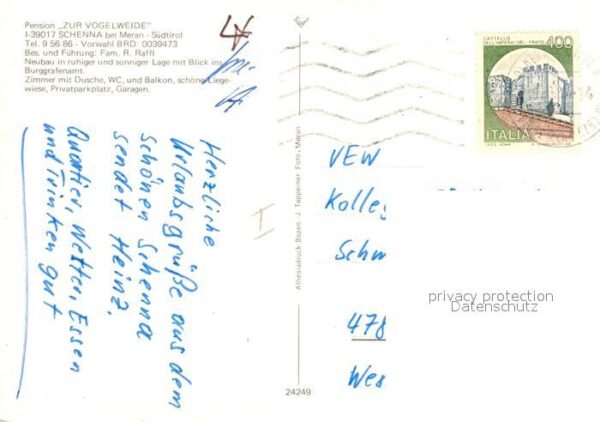 Pension „ZUR VOGELWEIDE"
I-39017 SCHENNA bei Meran - Südtirol
Tel. 9 56 86 - Vorwahl BRD: 0039473
Bes. und Führung: Fam. R. Raffl
Neubau in ruhiger und sonniger Lage mit Blick ins
Burggrafenamt.
Zimmer mit Dusche, WC, und Balkon, schöne Liege-
wiese, Privatparkplatz, Garagen.
Herzliche
Urlaubsgrüße aus dem
schönen Schenna
sendet Heinz.
Quartier, Wetter, Essen
und Trinken gut
I
Athesiadruck Bozen - J. Tappeiner Foto, Meran
24249
CASTELLO
DELL'IMPERATORE - PRATO
400
ITALIA
VEW
Kolleg
Schm
privacy protection
Datenschutz
478
Wes